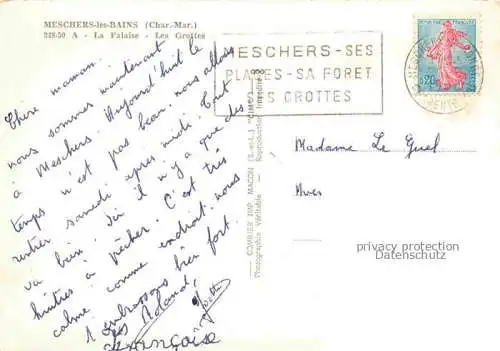 MESCHERS-les-BAINS (Char.-Mar.)
248-50 A - La Falaise - Les Grottes
MESCHERS - SES
PLAGES - SA FORET
SES GROTTES
0,20
Chère maman.
nous sommes maintenant
à Meschers. Aujourd'hui le
temps n'est pas beau, nous allons
rentrer samedi après midi. Tout
va bien. Ici il n'y a que des
huitres à pêcher. C'est très
calme comme endroit. nous
t'embrassons bien fort.
Roland
Françoise
COMBIER IMP. MACON (S.-et-L.) "CIM"
Photographie Véritable - Reproduction Interdite
Madame Le Guel
privacy protection
Datenschutz